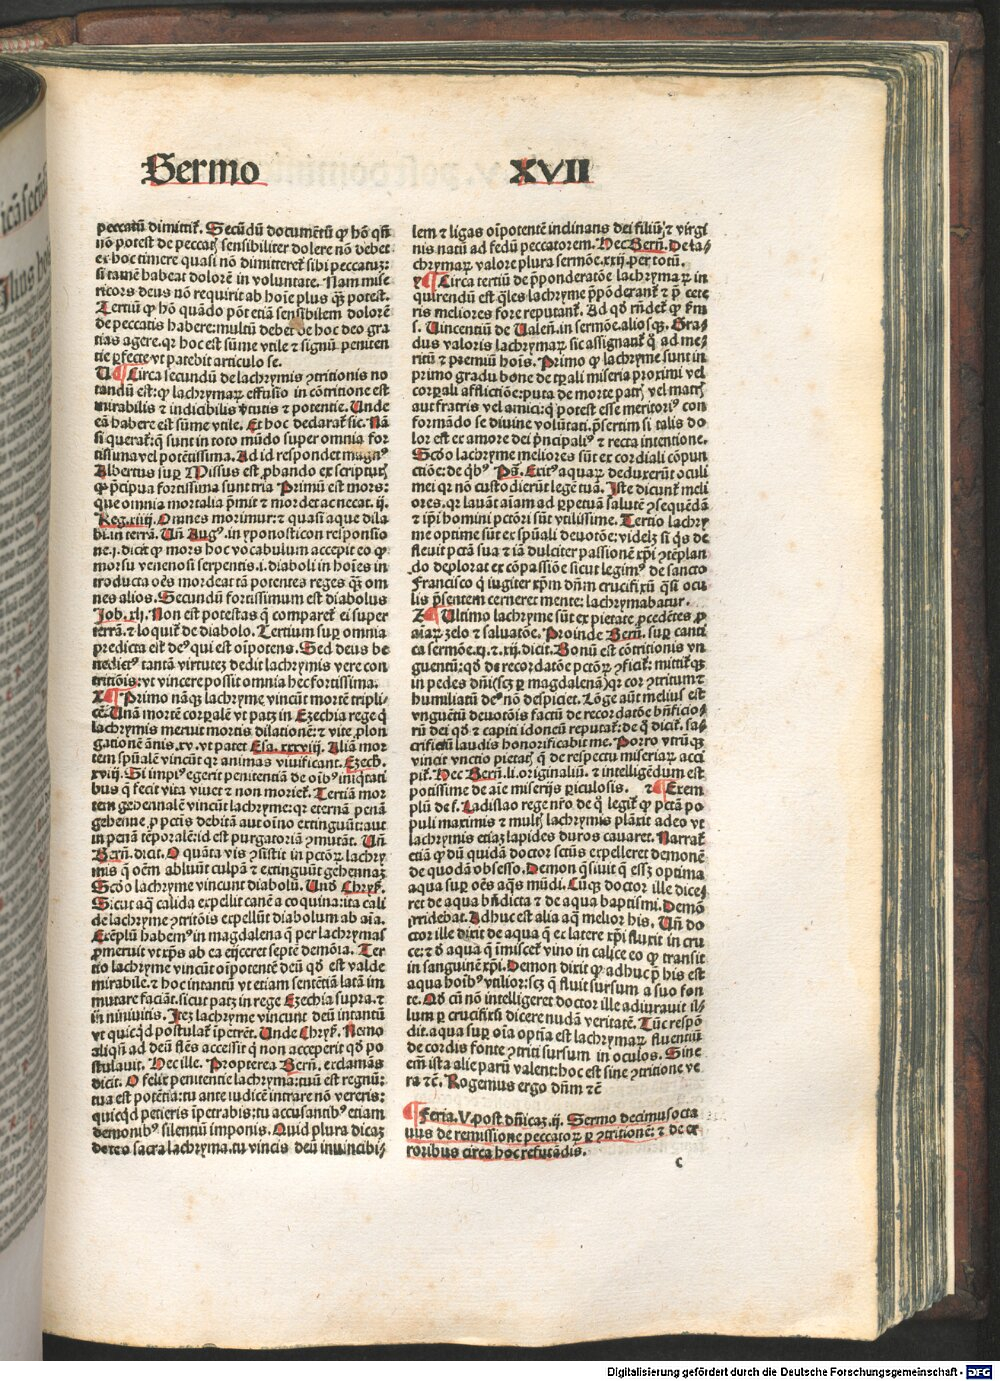 Sermo XVII
peccatū dimittit̄. Secūdū documētū ꝙ hō qn̄
nō potest de peccatꝭ sensibiliter dolere nō debet
ex hoc timere quasi nō dimitteret̄ sibi peccatuꝫ:
si tamē habeat dolorē in voluntate. Nam mise
ricors deus nō requirit ab hoīe plus qꝫ potest.
Tertiū ꝙ hō quādo pōt etiā sensibilem dolorē
de peccatis habere: multū debet de hoc deo gra
tias agere. qr hoc est sūme vtile ⁊ signū peniten
tie ꝑfecte vt patebit articulo se.
V ¶ Circa secundū de lachrymis ꝯtritionis no
tandū est: ꝙ lachrymaꝝ effusio in cōtritione est
mirabilis ⁊ indicibilis v̓tutis ⁊ potentie. Unde
eā habere est sūme vtile. Et hoc declarat̄ sic. Nā
si querat̄: q̄ sunt in toto mūdo super omnia for
tissima vel potētissima. Ad id respondet magnꝰ
Albertus suꝑ Missus est ꝓbando ex scripturꝭ
ꝙ p̄cipua fortissima sunt tria Primū est mors:
que omnia mortalia p̄mit ⁊ mordet ac necat. ij.
Reg. xiiij. Omnes morimur: ⁊ quasi aque dila
bi. in terrā. Un̄ Augꝰ. in yponosticon responsio
ne. j. dicit ꝙ mors hoc vocabulum accepit eo ꝙ
morsu venenosi serpentis. i. diaboli in hoīes in
troducta oēs mordeat tā potentes reges q̄ꝫ om
nes alios. Secundū fortissimum est diabolus
Job. xlj. Non est potestas q̄ comparet̄ ei super
terrā. ⁊ loquit̄ de diabolo. Tertium suꝑ omnia
predicta est deꝰ qui est oīpotens. Sed deus be
nedictꝰ tantā virtuteꝫ dedit lachrymis vere con
tritiōis: vt vincere possit omnia hec fortissima.
X ¶ Primo nāqꝫ lachryme vincūt mortē tripli-
cē. Unā mortē corꝑalē vt patꝫ in Ezechia rege q̇
lachrymis meruit mortis dilationē: ⁊ vite ꝓlon
gationē ānis. xv. vt patet Esa. xxxviij. Aliā mor
tem spūalē vincūt qr animas viuificant. Ezech.
xviij. Si impiꝰ egerit penitentiā de oībꝰ iniq̇tati
bus q̄ fecit vita viuet ⁊ non moriet̄. Tertiā mor
tem gehennalē vincūt lachryme: qr eternā penā
gehenne ꝓ pctīs debitā aut oīno extinguūt: aut
in penā tēporalē: id est purgatoriā ꝯmutāt. Un̄
Bern̄. dicit. O quāta vis ꝯsistit in pctōꝝ lachry
mis q̄ oēm abluūt culpā ⁊ extinguūt gehennaꝫ
Scdo lachryme vincunt diabolū. Unde Chryẜ.
Sicut aq̄ calida expellit canē a coquina: ita cali
de lachryme ꝯtritōis expellūt diabolum ab aīa.
Exēplū habemꝰ in magdalena q̄ per lachrymas
ꝓmeruit vt xp̄s ab ea eijceret septē demōia. Ter
tio lachryme vincūt oīpotentē deū qd̄ est valde
mirabile. ⁊ hoc intantū vt etiam sentētiā latā im
mutare faciāt. sicut patꝫ in rege Ezechia supra. ⁊
in niniuitis. Iteꝫ lachryme vincunt deū intantū
vt quicq̇d postulat̄ īpetrēt. Unde Chryẜ. Nemo
aliqn̄ ad deū flēs accessit q̇ non acceperit qd̄ po
stulauit. Hec ille. Propterea Bern̄. exclamās
dicit. O felix penitentie lachryma: tuū est regnū:
tua est potētia: tu ante iudicē intrare non vereris:
quicq̇d petieris īpetrabis: tu accusantibꝰ etiam
demonibꝰ silentiū imponis. Quid plura dicaꝫ
de te o sacra lachryma. tu vincis deū inuincibi-
lem ⁊ ligas oīpotentē inclinans dei filiū. ⁊ virgi
nis natū ad fedū peccatorem. Hec Bern̄. De la-
chrymaꝝ valore plura sermōe. xxij. per totū.
y ¶ Circa tertiū de p̄ponderatōe lachrymaꝝ in
quirendū est q̄les lachryme p̄pōderant̄ ⁊ p̄ cete
ris meliores fore reputant̄. Ad qd̄ rn̄det̄ ꝙ ẜm
s. Vincentiū de Valeñ. in sermōe. aliosqꝫ. Gra-
dus valoris lachrymaꝝ sic assignant̄ q̊ ad me-
ritū ⁊ premiū hoīs. Primo ꝙ lachryme sunt in
primo gradu bone de tꝑali miseria proximi vel
corꝑali afflictiōe: puta de morte patrꝭ vel matrꝭ
aut fratris vel amici: q̄ potest esse meritoriꝰ con
formādo se diuine volūtati. p̄sertim si talis do
lor est ex amore dei p̄ncipaliꝰ ⁊ recta intentione.
Scdo lachryme meliores sūt ex cordiali cōpun
ctiōe: de q̇bꝰ Ps̄. Exitꝰ aquaꝝ deduxerūt oculi
mei qr nō custodierūt legē tuā. Iste dicunt̄ meli
ores. qr lauāt aīam ad ꝑpetuā salutē ꝯsequēdā
⁊ ip̄i homini pctōri sūt vtilissime. Tertio lachry
me optime sūt ex spūali deuotōe: videlꝫ si q̇s de
fleuit pctā sua ⁊ iā dulciter passionē xp̄i ꝯtēplan
do deplorat ex cōpassiōe sicut legimꝰ de sancto
Francisco q̇ iugiter xp̄m dn̄m crucifixū q̄si ocu
lis p̄sentem cerneret mente: lachrymabatur.
Z ¶ Ultimo lachryme sūt ex pietate p̄cedētes ꝓ
aīaꝝ zelo ⁊ saluatōe. Proinde Bern̄. suꝑ canti
ca sermōe. xj. ⁊. xij. dicit. Bonū est cōtritionis vn
guentū: qd̄ de recordatōe pctōꝝ ꝯficit̄: mittit̄qꝫ
in pedes dn̄i (scꝫ ꝑ magdalenā) qr cor ꝯtritum ⁊
humiliatū deꝰ nō despiciet. Lōge aūt melius est
vnguētū deuotōis factū de recordatōe bn̄ficio-
rū dei qd̄ ⁊ capiti idoneū reputat̄: de q̊ dicit̄. sa-
crificiū laudis honorificabit me. Porro vtrūqꝫ
vincit vnctio pietatꝭ q̄ de respectu miseriaꝝ acci
pit̄. Hec Bern̄. li. originaliū. ⁊ intelligēdum est
potissime de aīe miserijs ꝑiculosis. ⁊ ¶ Exem
plū de s. Ladislao rege nr̄o de q̊ legit̄ ꝙ pctā po
puli maximis ⁊ multꝭ lachrymis plāxit adeo vt
lachrymis etiaꝫ lapides duros cauaret. Narrat̄
etiā ꝙ dū quidā doctor sctūs expelleret demonē
de quodā obsesso. Demon q̄siuit q̄ esset optima
aqua suꝑ oēs aq̄s mūdi. Cūqꝫ doctor ille dice-
ret de aqua bn̄dicta ⁊ de aqua baptismi. Demō
irridebat. Adhuc est alia aq̄ melior his. Un̄ do
ctor ille dixit de aqua q̄ ex latere xp̄i fluxit in cru
ce: ⁊ d̄ aqua q̄ īmiscet̄ vino in calice eo ꝙ transit
in sanguinē xp̄i. Demon dixit ꝙ adhuc p̄ his est
aqua hoībꝰ vtilior: scꝫ q̄ fluit sursum a suo fon
te. Qd̄ cū nō intelligeret doctor ille adiurauit il-
lum ꝑ crucifixū dicere nudā veritatē. Tūc respō
dit. aqua suꝑ oīa optīa est lachrymaꝝ fluentiū
de cordis fonte ꝯtriti sursum in oculos. Sine
em̄ ista alie parū valent: hoc est sine ꝯtritione ve
ra ⁊c̄. Rogemus ergo dn̄m ⁊c̄
¶ Feria. V. post dn̄icaꝫ. ij. Sermo decimusocta
uus de remissione peccatoꝝ ꝑ ꝯtritionē: ⁊ de er
roribus circa hoc refutādis.
c
Digitalisierung gefördert durch die Deutsche Forschungsgemeinschaft - DFG